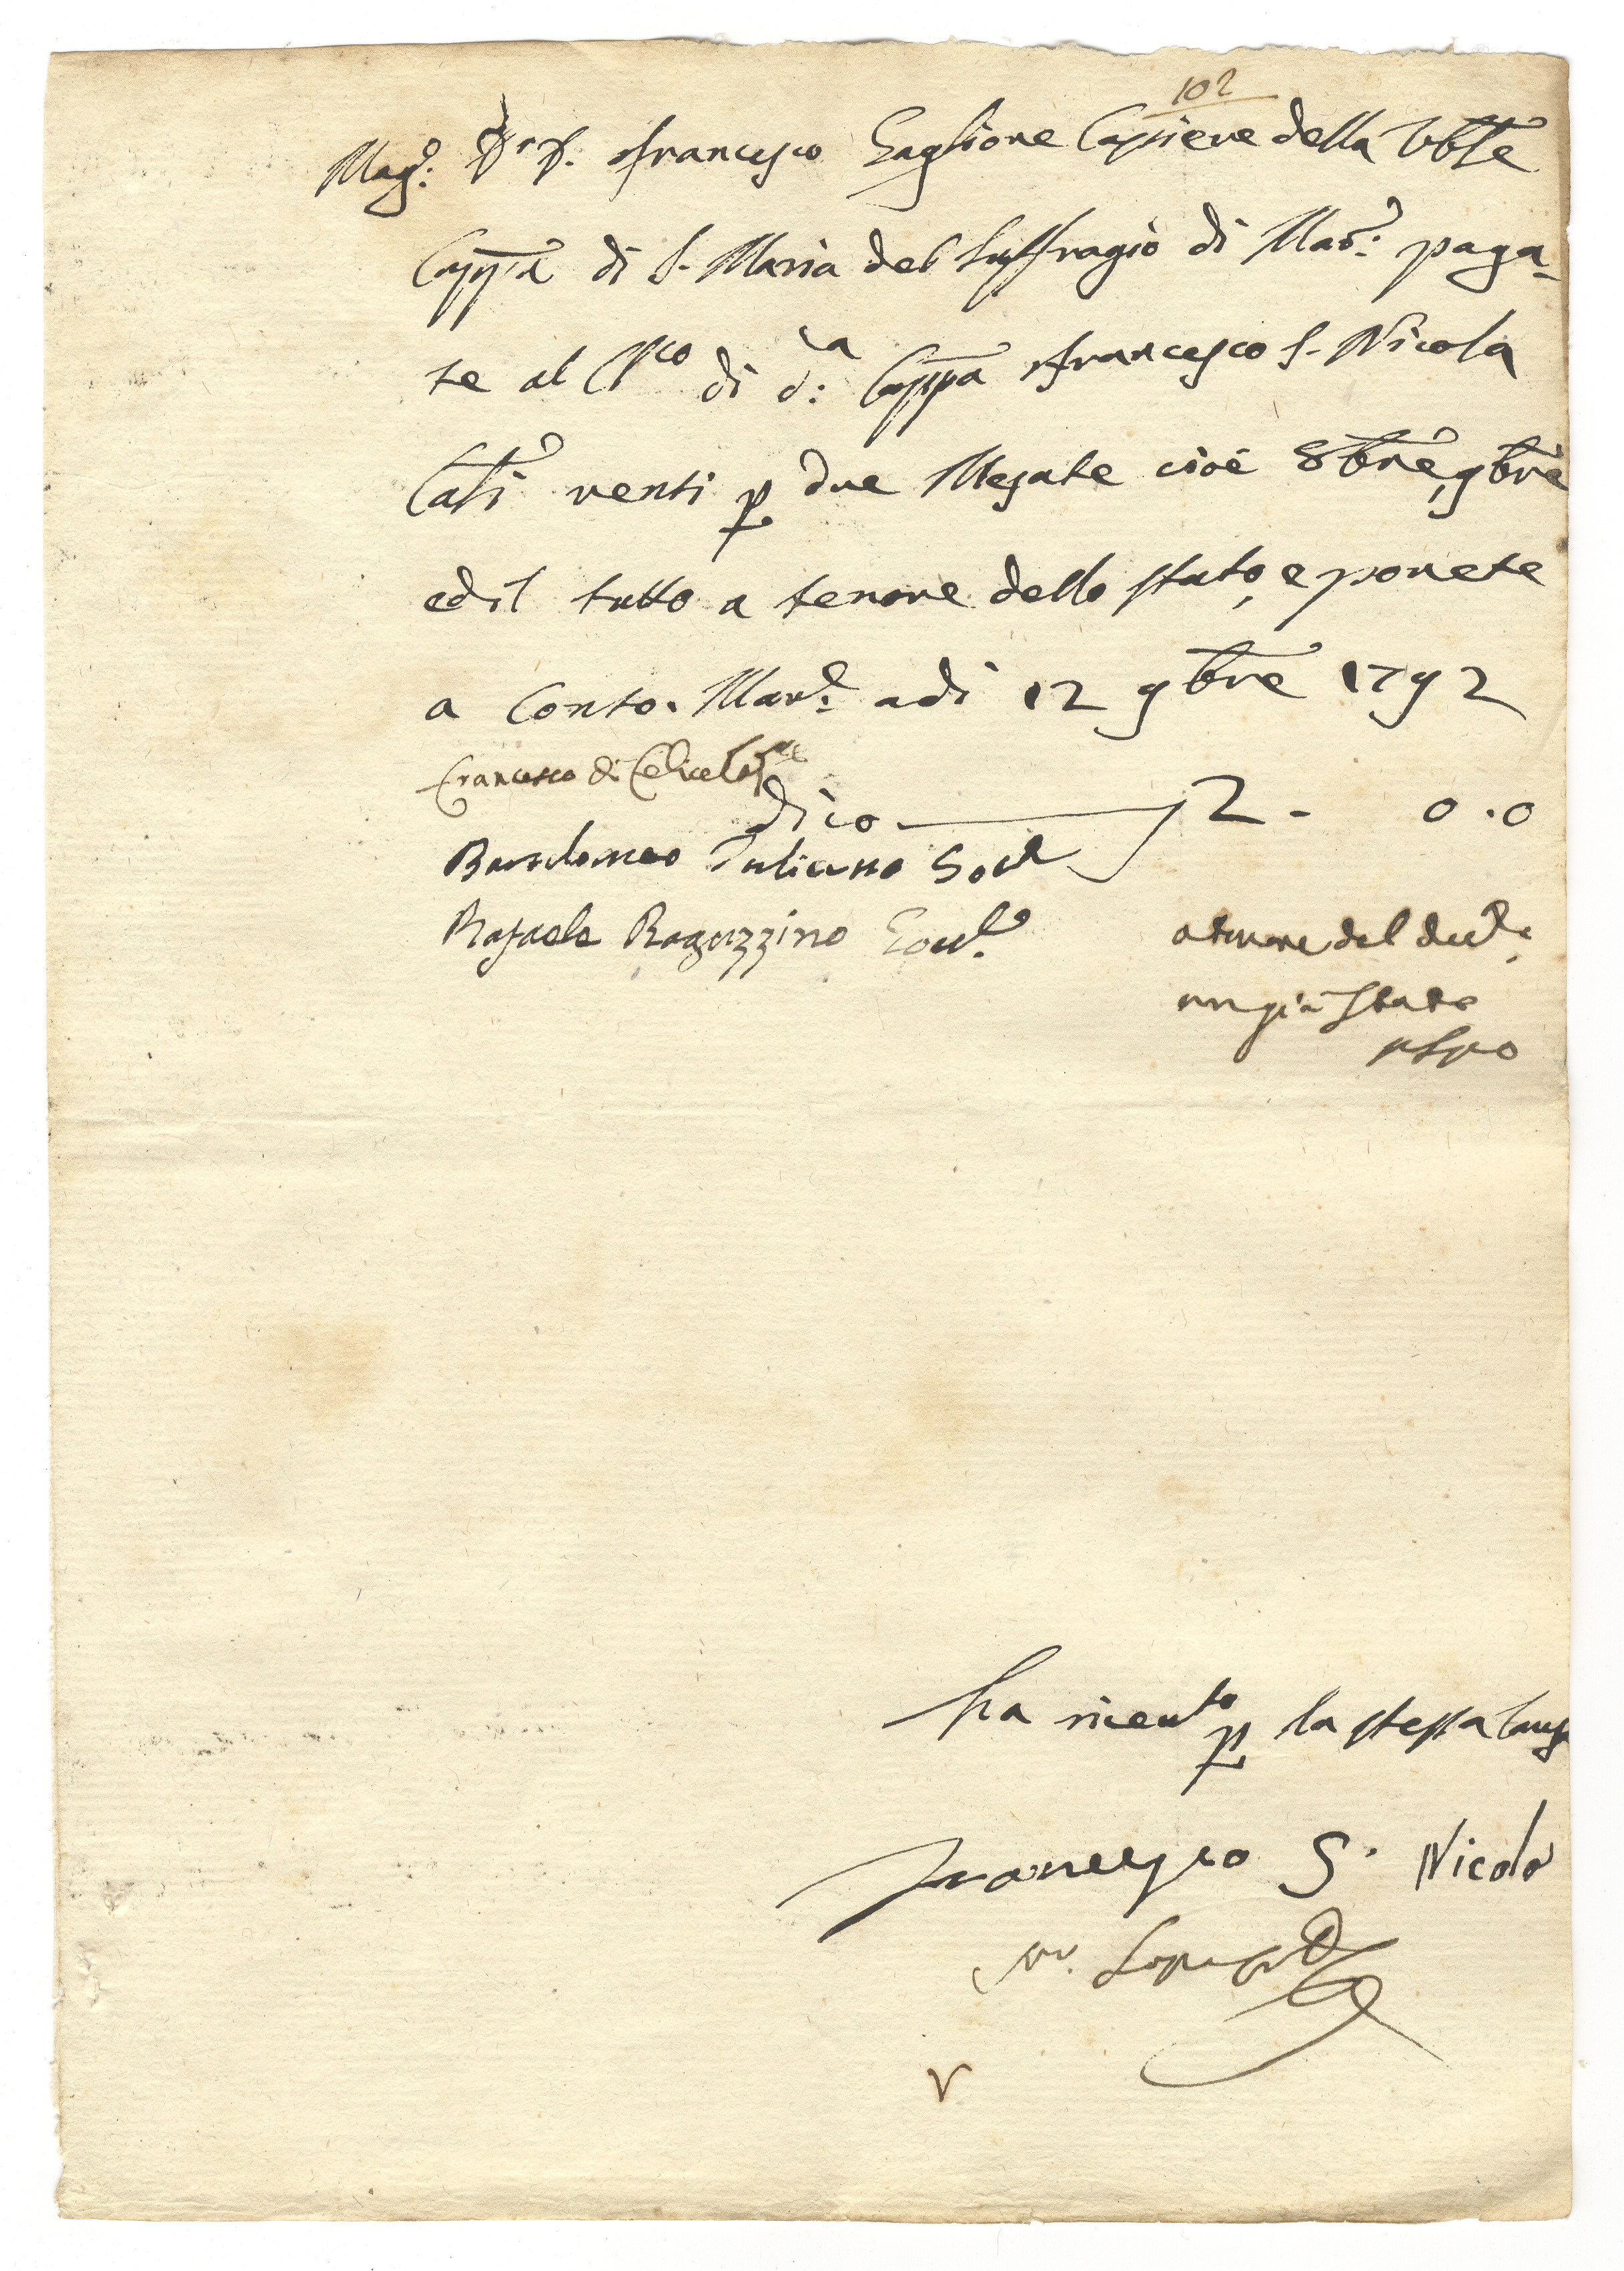 102
Mag.co Dr. D. Francesco Gaglione Cassiere della Vble
Cappa di S. Maria del Suffragio di Mar.: paga-
te al Chco di d:a Cappa Francesco S. Nicola
Carli venti p due Mesate cioè 8bre, 9bre
ed il tutto a tenore dello stato, e ponete
a Conto. Mar.o adi 12 9bre 1792
Francesco di
dico 2 - 0.0
Bartolomeo Iuliano
Rafaele Raguzzino
a tenore del
Stato
ha ricevuto p la stessa Causa
Francesco S. Nicola
V